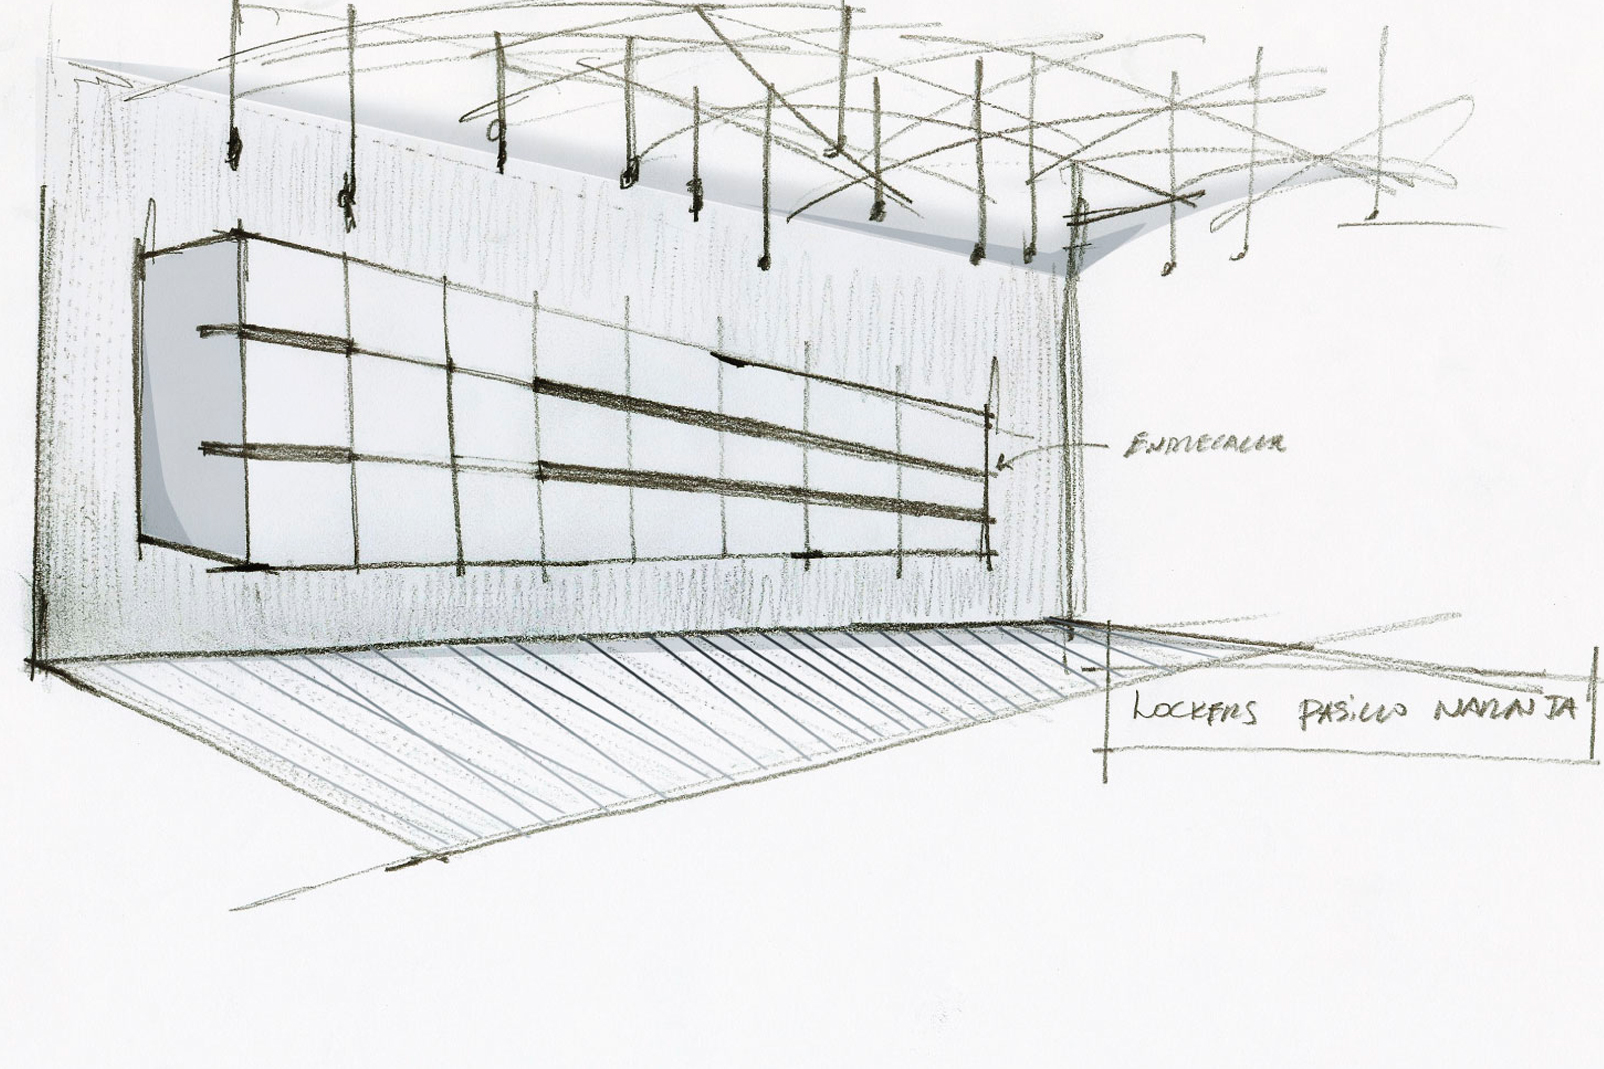 ENTRECALLE
LOCKERS PASILLO NARANJA